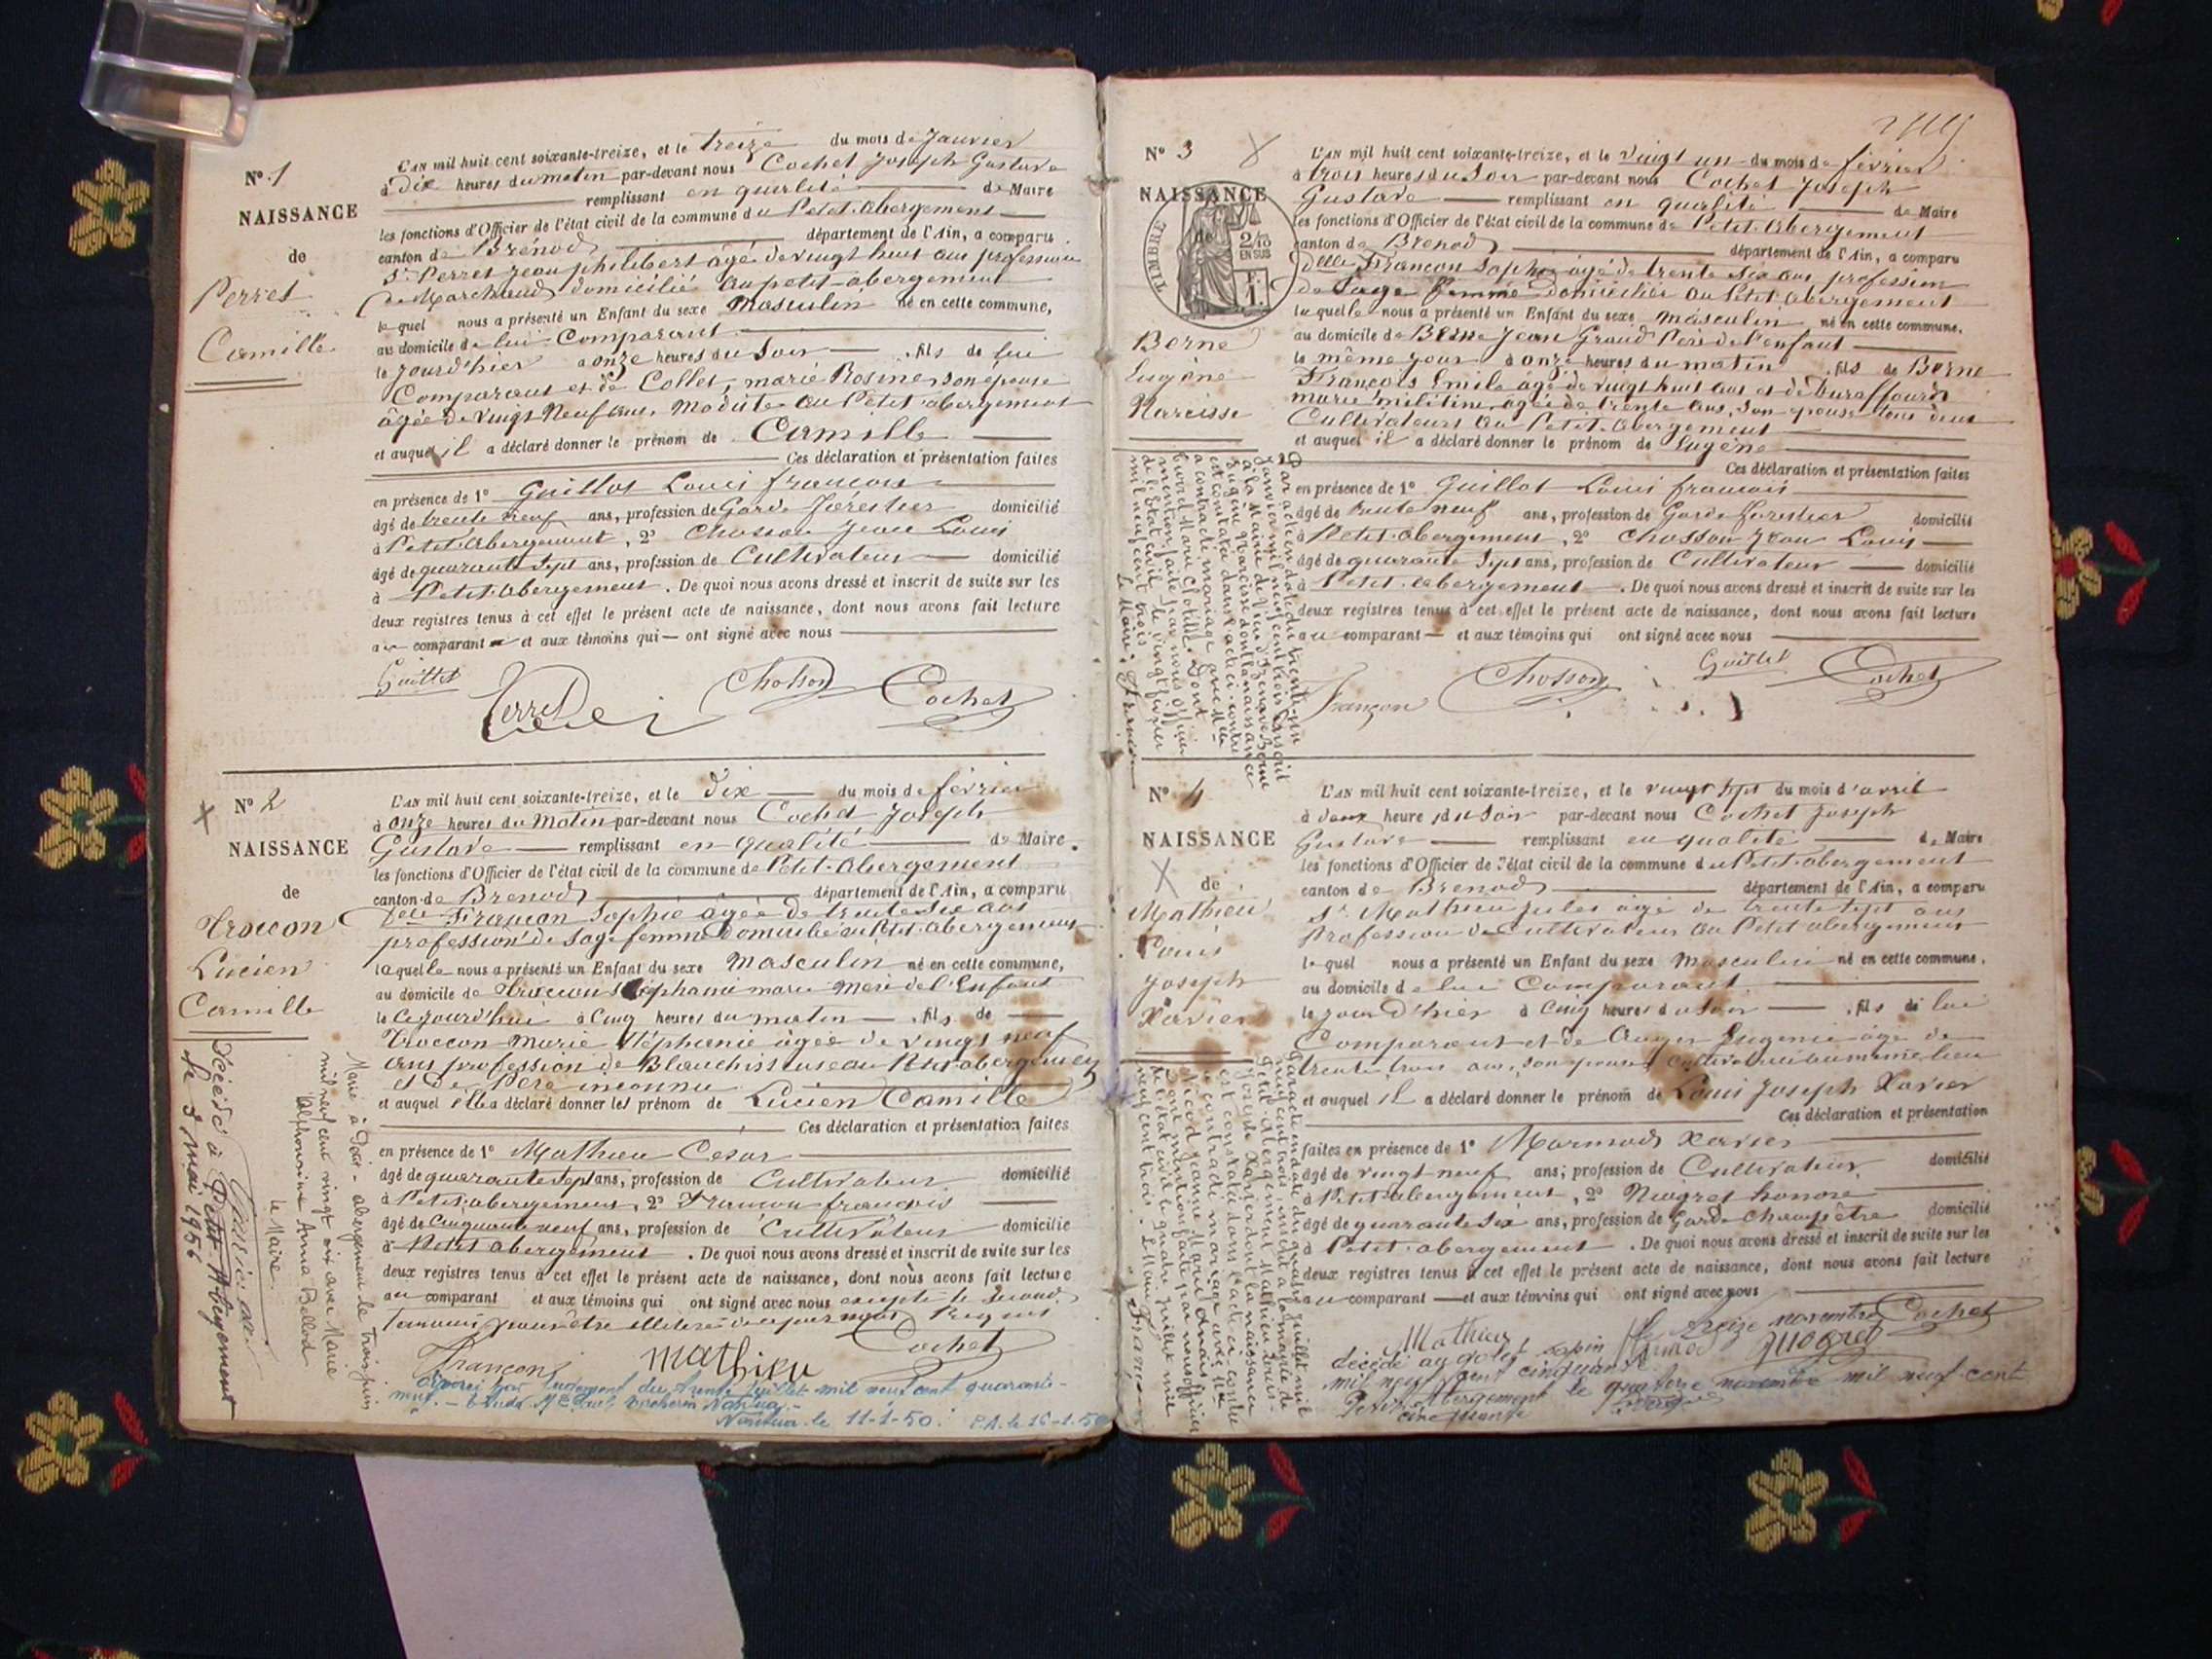 N° 1
NAISSANCE
de
Perret
Camille
L'AN mil huit cent soixante-treize, et le treize du mois de Janvier
à Dix heures du matin par-devant nous Cochet Joseph Gustave
remplissant en qualité de Maire
les fonctions d'Officier de l'état civil de la commune du Petit-abergement
canton de Brénod département de l'Ain, a comparu
Sr Perret Jean philibert âgé de vingt huit ans profession
de Marchand domicilié au petit-abergement
lequel nous a présenté un Enfant du sexe masculin né en cette commune,
au domicile de lui Comparant
le jourd'hier à onze heures du Soir fils de lui
Comparant et de Collet, marie Rosine son épouse
âgée de vingt Neuf ans, Modiste au Petit abergement
et auquel il a déclaré donner le prénom de Camille
Ces déclaration et présentation faites
en présence de 1° Guillot Louis françois
âgé de trente neuf ans, profession de Garde Forestier domicilié
à Petit-abergement, 2° Chosson Jean Louis
âgé de quarante sept ans, profession de Cultivateur domicilié
à Petit-abergement. De quoi nous avons dressé et inscrit de suite sur les
deux registres tenus à cet effet le présent acte de naissance, dont nous avons fait lecture
au comparant et aux témoins qui ont signé avec nous
Guillot Perret Chosson Cochet
N° 2
NAISSANCE
de
Troccon
Lucien
Camille
L'AN mil huit cent soixante-treize, et le Dix du mois de février
à onze heures du Matin par-devant nous Cochet Joseph
Gustave remplissant en qualité de Maire.
les fonctions d'Officier de l'état civil de la commune de Petit-abergement
canton de Brenod département de l'Ain, a comparu
Delle Françon Sophie âgée de trente Six ans
profession de Sage femme Domiciliée au Petit-abergement
laquelle nous a présenté un Enfant du sexe Masculin né en cette commune,
au domicile de Troccon Stéphanie marie Mère de l'Enfant
le Cejourd'hui à Cinq heures du matin fils de
Troccon Marie Stéphanie âgée de vingt neuf
ans profession de Blanchisseuse au Petit abergement
et de Père inconnu
et auquel elle a déclaré donner les prénom de Lucien Camille
Ces déclaration et présentation faites
en présence de 1° Mathieu Cesar
âgé de quarante Sept ans, profession de Cultivateur domicilié
à Petit-abergement, 2° Françon françois
âgé de Cinquante neuf ans, profession de Cultivateur domicilié
à Petit abergement. De quoi nous avons dressé et inscrit de suite sur les
deux registres tenus à cet effet le présent acte de naissance, dont nous avons fait lecture
au comparant et aux témoins qui ont signé avec nous excepté le Second
Temoins pour être illeteré de ce par nous Requis
Françon Mathieu Cochet
Marié à Petit-abergement le trois juin
mil neuf cent vingt six avec Marie
Alphonsine Anna Bellod
Le Maire
Décédé à Petit Abergement
le 3 mai 1956
Jugement du trente juillet mil neuf cent quarante-
neuf.
Nantua le 11-1-50.
N° 3
NAISSANCE
de
TIMBRE
2/10
EN SUS
Borne
Eugène
Narcisse
L'AN mil huit cent soixante-treize, et le vingt un du mois de février
à trois heures du Soir par-devant nous Cochet Joseph
Gustave remplissant en qualité de Maire
les fonctions d'Officier de l'état civil de la commune de Petit-abergement
canton de Brenod département de l'Ain, a comparu
Delle Françon Sophie âgé de trente Six ans profession
de Sage femme domiciliée au Petit abergement
laquelle nous a présenté un Enfant du sexe masculin né en cette commune.
au domicile de Borne Jean Grand Père de l'enfant
le même jour à onze heures du matin fils de Borne
François Emile âgé de vingt huit ans et de Buraffourd
marie militine âgée de trente ans, son épouse tous deux
Cultivateurs au Petit-abergement
et auquel il a déclaré donner le prénom de Eugène
Ces déclaration et présentation faites
en présence de 1° Guillot Louis françois
âgé de trente neuf ans, profession de Garde forestier domicilié
à Petit-abergement, 2° Chosson Jean Louis
âgé de quarante Sept ans, profession de Cultivateur domicilié
à Petit-abergement. De quoi nous avons dressé et inscrit de suite sur les
deux registres tenus à cet effet le présent acte de naissance, dont nous avons fait lecture
au comparant et aux témoins qui ont signé avec nous
Françon Chosson Guillot Cochet
Par acte en date du trente-un
Janvier mil neuf cent trois inscrit
à la Mairie de Vieu d'Izenave Borne
Eugène Narcisse dont la naissance
est constatée dans l'acte ci-contre
a contracté mariage avec Melle
Marie Clotilde. Dont
mention faite par nous officier
de l'état civil le vingt février
mil neuf cent trois
Le Maire.
N° 4
NAISSANCE
de
Mathieu
Louis
Joseph
Xavier
L'AN mil huit cent soixante-treize, et le vingt sept du mois d'avril
à deux heures du Soir par-devant nous Cochet Joseph
Gustave remplissant en qualité de Maire
les fonctions d'Officier de l'état civil de la commune du Petit-abergement
canton de Brenod département de l'Ain, a comparu
Sr Mathieu Jules âgé de trente sept ans
Profession de Cultivateur au Petit abergement
lequel nous a présenté un Enfant du sexe masculin né en cette commune.
au domicile de lui Comparant
le jour D'hier à Cinq heures du Soir fils de lui
Comparant et de Auger Eugenie âgé de
trente trois ans, son épouse cultivatrice au même lieu
et auquel il a déclaré donner le prénom de Louis Joseph Xavier
Ces déclaration et présentation
faites en présence de 1° Marmod Xavier
âgé de vingt neuf ans; profession de Cultivateur domicilié
à Petit-abergement, 2° Neugret honore
âgé de quarante Six ans, profession de Garde Champêtre domicilié
à Petit-abergement. De quoi nous avons dressé et inscrit de suite sur les
deux registres tenus à cet effet le présent acte de naissance, dont nous avons fait lecture
au comparant et aux témoins qui ont signé avec nous
Mathieu Cochet
décédé au le treize novembre
mil neuf cent cinquante
Petit-Abergement le quatorze novembre mil neuf cent
cinquante
Par acte en date du quatre juillet mil
neuf cent trois inscrit à la mairie de
Petit-Abergement Mathieu Louis-
Joseph Xavier dont la naissance
est constatée dans l'acte ci-contre
a contracté mariage avec Melle
Nicod Jeanne Marie Anaïs
Dont mention faite par nous officier
de l'état civil le quatre juillet mil
neuf cent trois. Le Maire